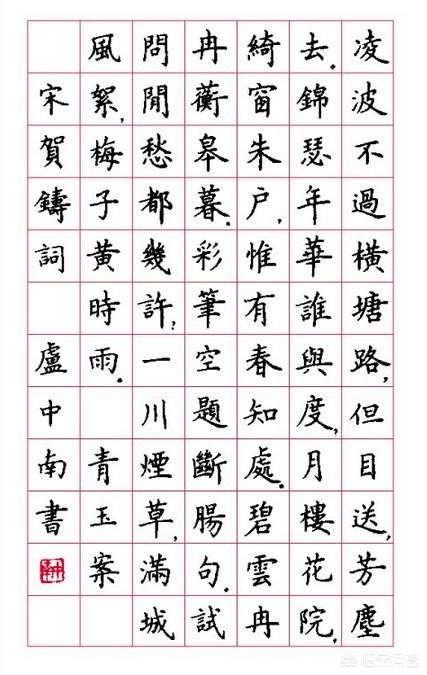 凌波不過橫塘路，但目送，芳塵
去。錦瑟年華誰與度，月樓花院，
綺窗朱户，惟有春知處。碧雲冉
冉蘅皋暮。彩筆空題斷腸句。試
問閒愁都幾許，一川煙草，滿城
風絮，梅子黃時雨。 青玉案
宋賀鑄詞 盧中南書
悟空问答